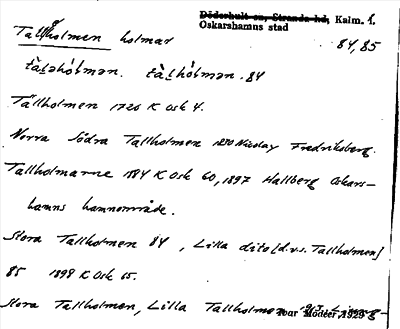 Döderhult sn, Stranda hd, Kalm. l.
Oskarshamns stad
Tallholmen holmar 84,85
tàləhól̀mən. tàl̀hól̀mən. 84
Tällholmen 1726 K Osk 4.
Norra Södra Tallholmen 1850 Nicolay Fredriksberg.
Tallholmarne 1884 K Osk 60, 1897 Hallberg Oskars-
hamns hamnområde.
Stora Tallholmen 84, Lilla dito [d.v.s. Tallholmen]
85 1898 K Osk 65.
Stora Tallholmen, Lilla Tallholmen
Ivar Modéer, 1929